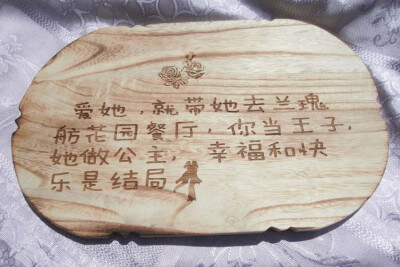 爱她，就带她去兰瑰
舫花园餐厅，你当王子，
她做公主，幸福和快
乐是结局